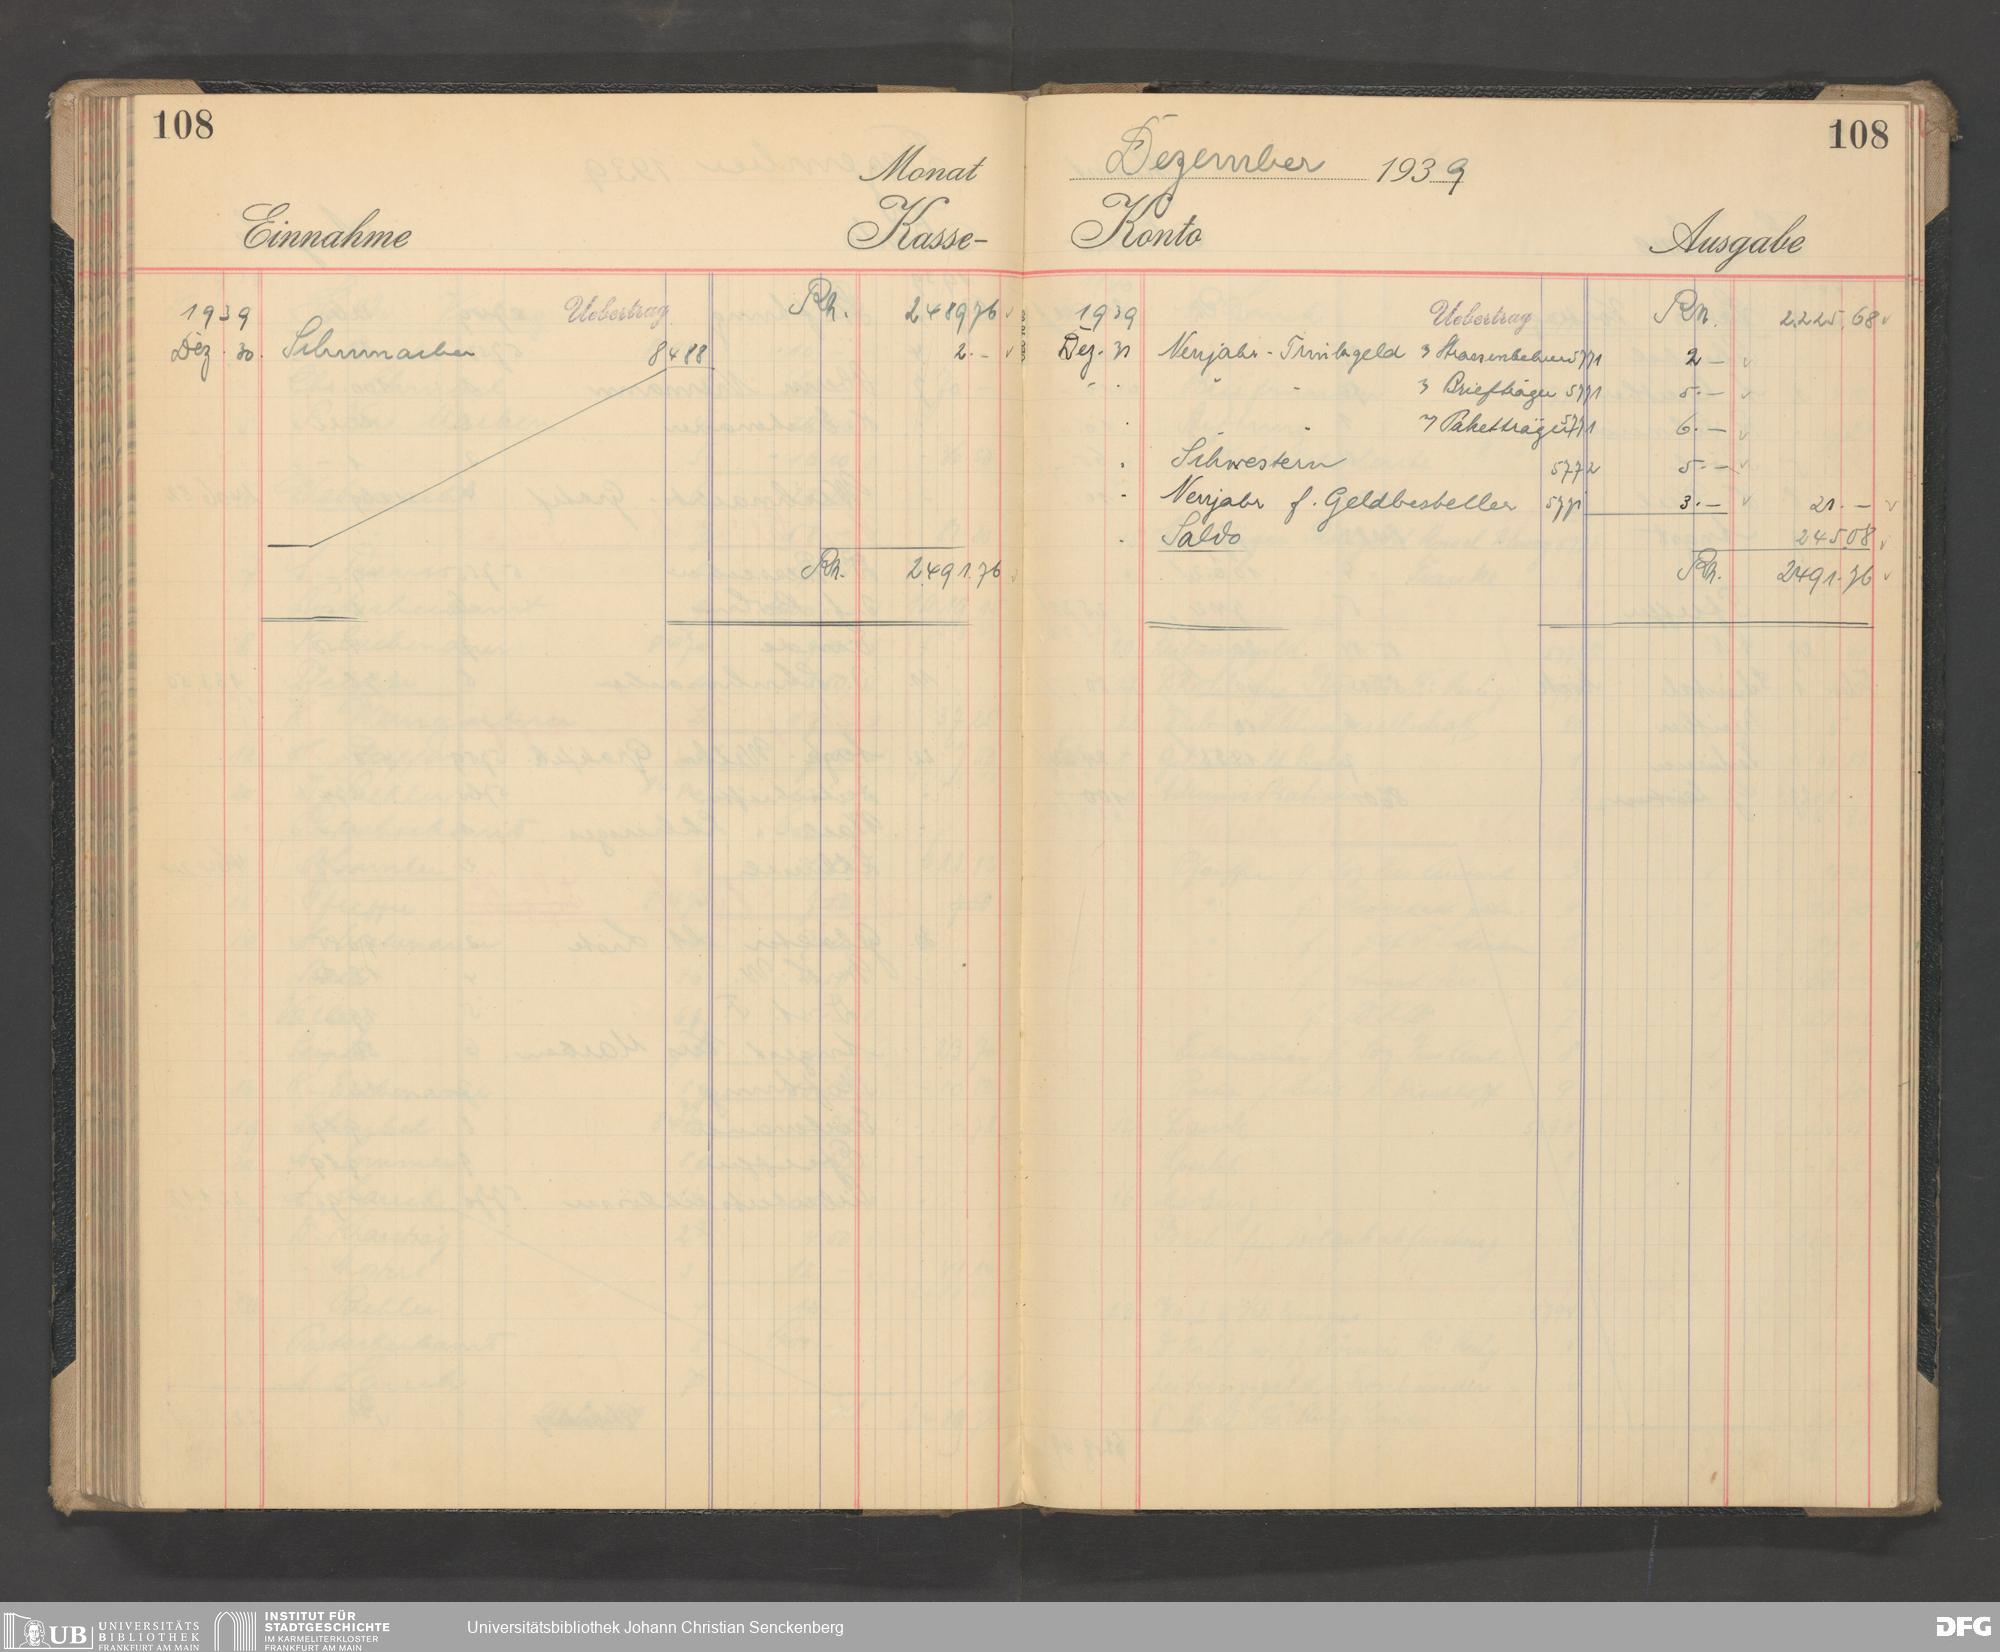 108
Monat
Einnahme
Kasse-
1939 Uebertrag Rh. 2489 76
Dez. 30. Schumacher 8488 2.-
Rh. 2491.76
108
Dezember 1939
Konto
Ausgabe
1939 Uebertrag Rh. 2225.68
Dez. 31 Neujahr-Trinkgeld 3 Strassenkehrer 5771 2 -
" " 3 Briefträger 5771 5.-
" 7 Paketträger 5771 6.-
Schwestern 5772 5.-
Neujahr f. Geldbesteller 5771 3.- 21.-
Saldo 245.08
Rh. 2491.76
UB UNIVERSITÄTS
BIBLIOTHEK
FRANKFURT AM MAIN
INSTITUT FÜR
STADTGESCHICHTE
IM KARMELITERKLOSTER
FRANKFURT AM MAIN
Universitätsbibliothek Johann Christian Senckenberg
DFG